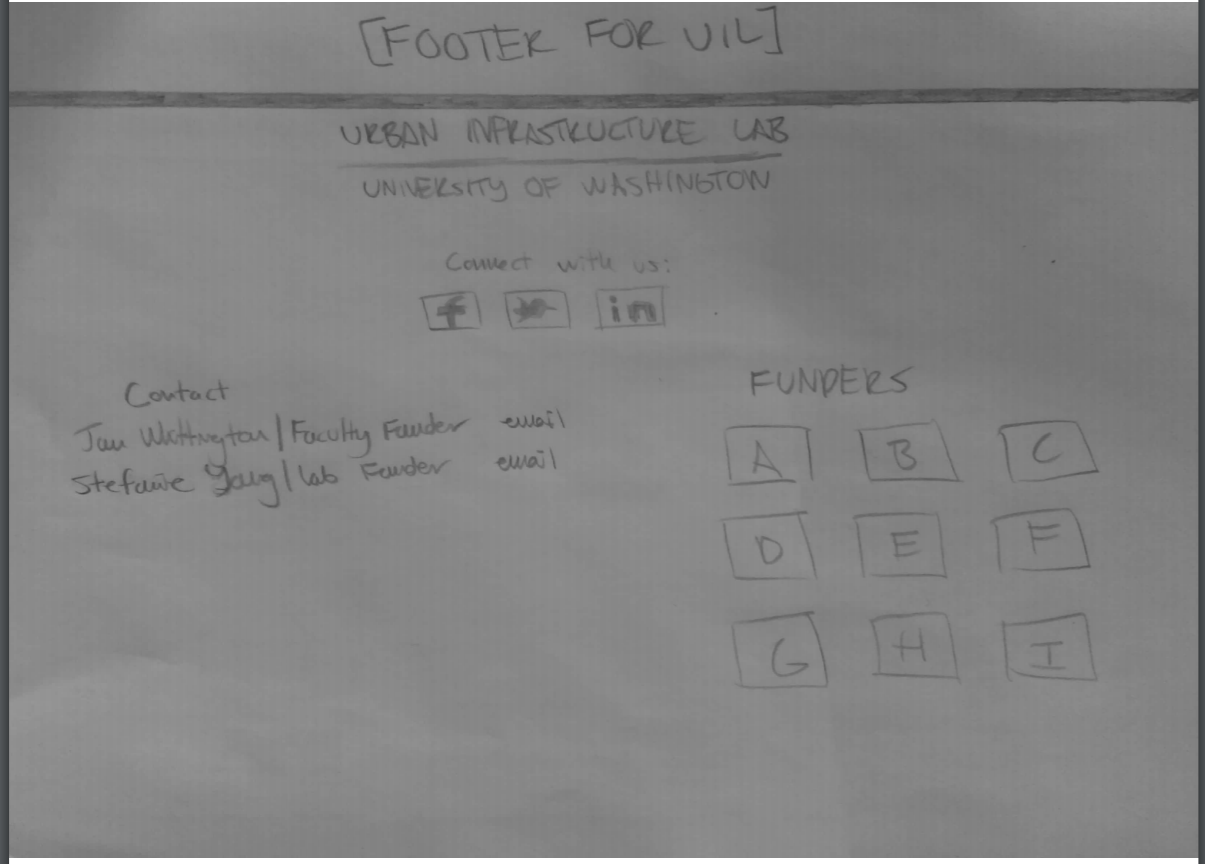 [FOOTER FOR UIL]
URBAN INFRASTRUCTURE LAB
UNIVERSITY OF WASHINGTON
Connect with us:
f in
Contact
Jan Whittington | Faculty Funder email
Stefanie Young | Lab Funder email
FUNDERS
A B C
D E F
G H I